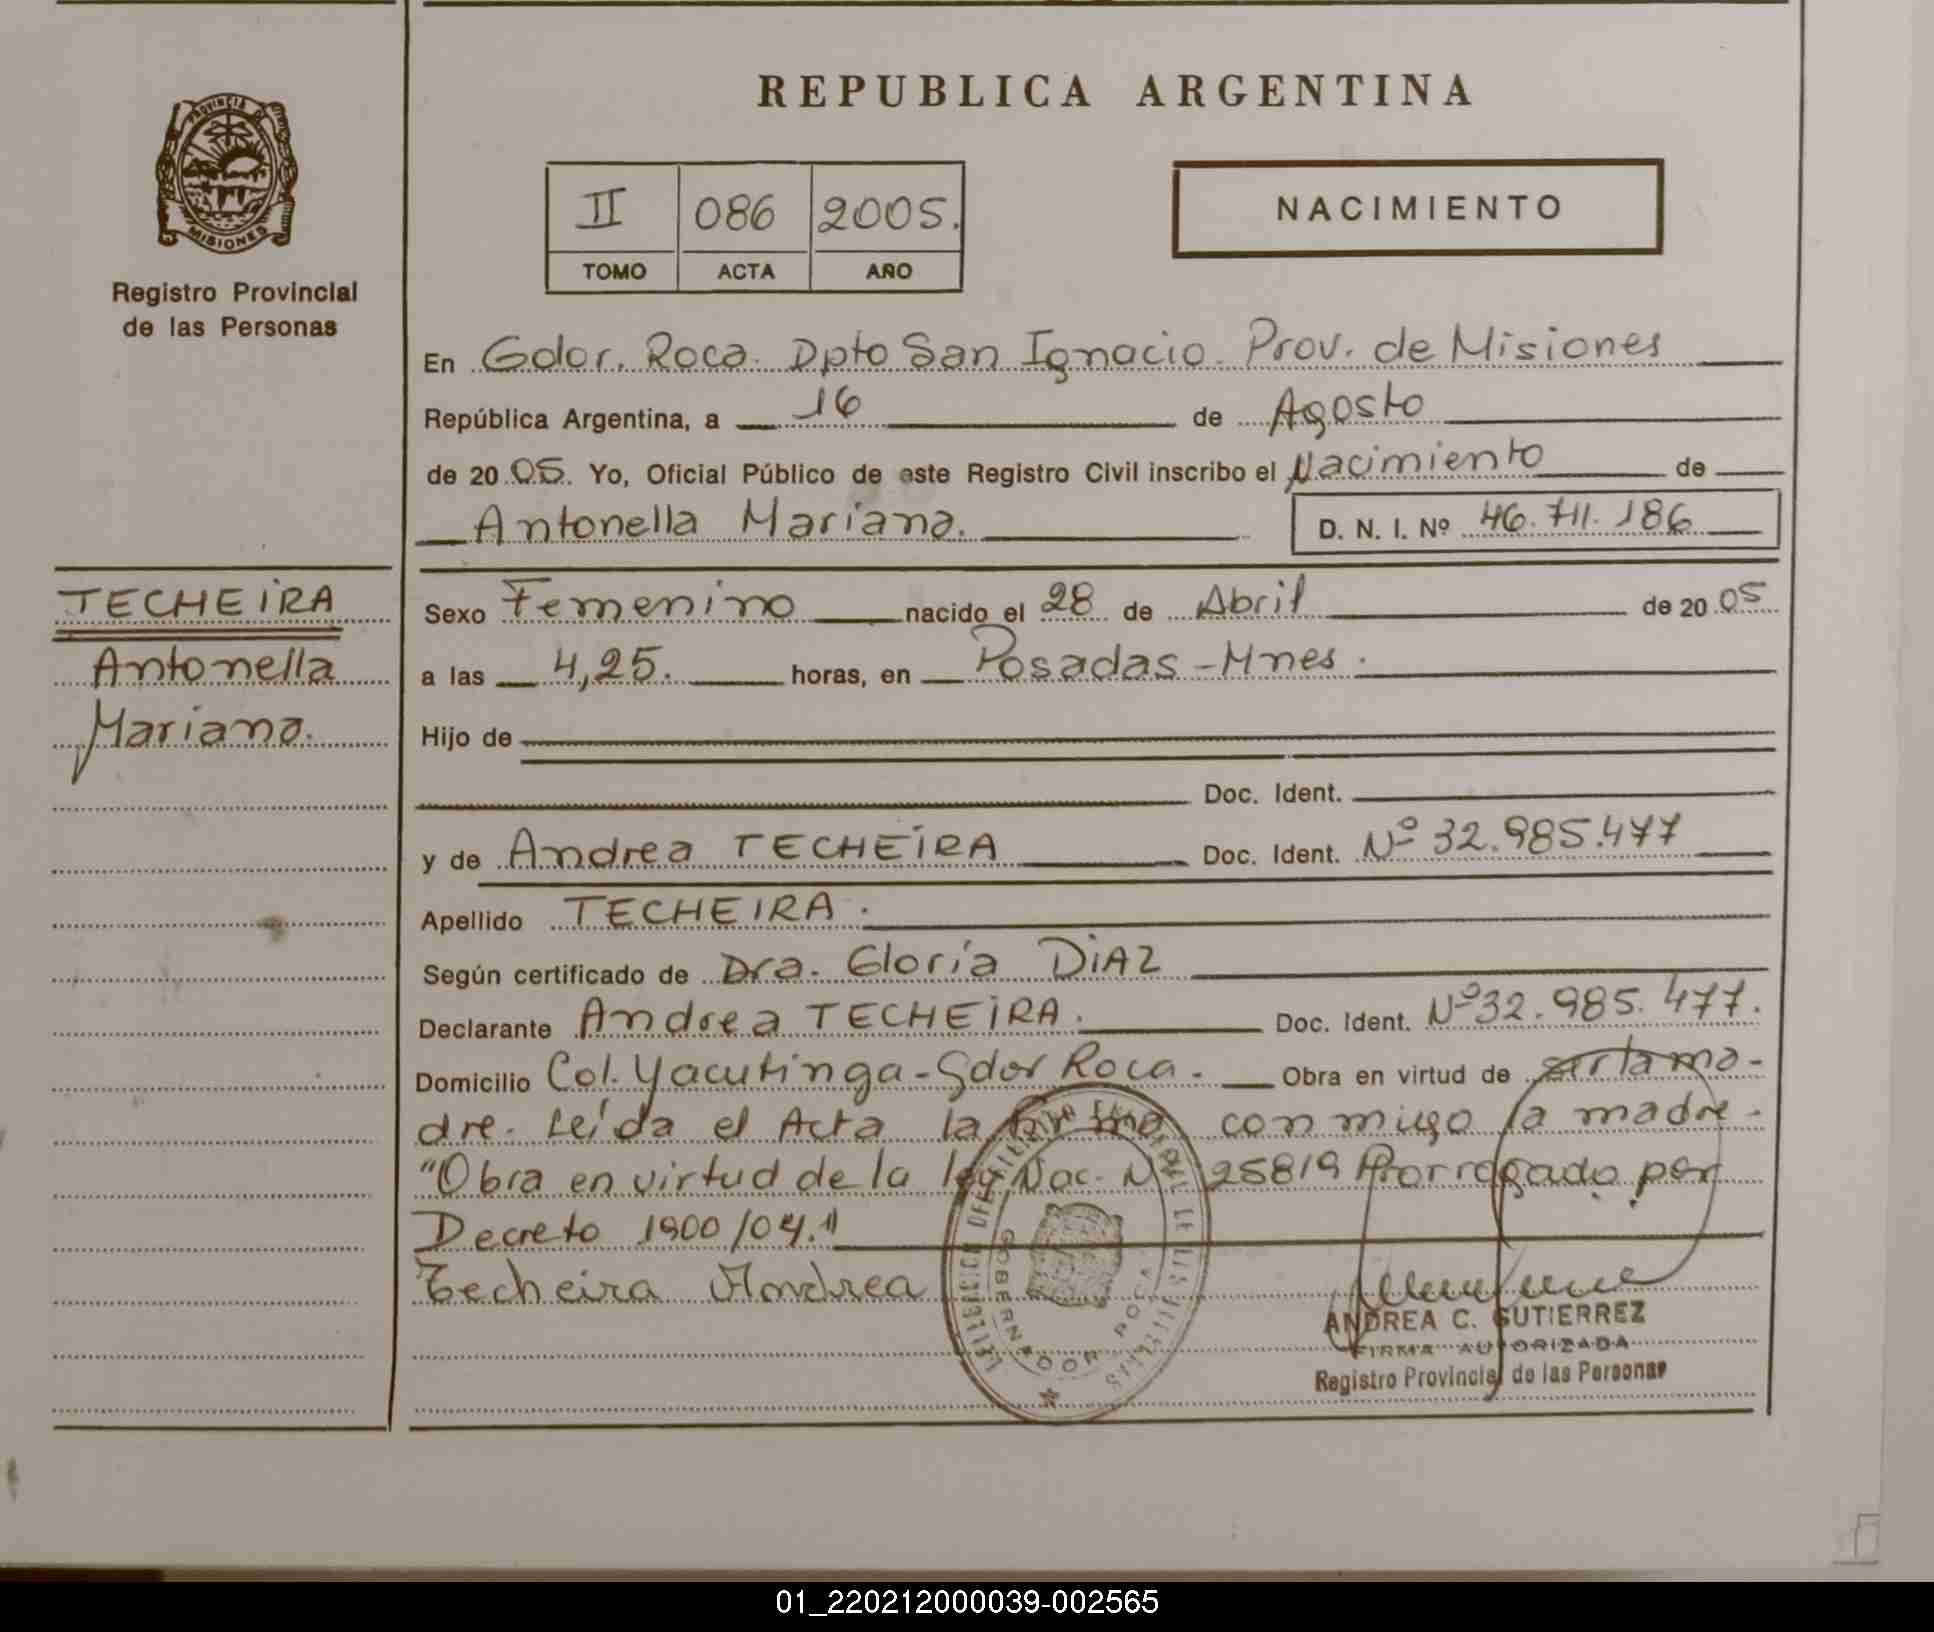 REPUBLICA ARGENTINA
PROVINCIA DE
MISIONES
Registro Provincial
de las Personas
II 086 2005.
TOMO ACTA AÑO
NACIMIENTO
En Gdor. Roca. Dpto San Ignacio. Prov. de Misiones
República Argentina, a 16 de Agosto
de 2005. Yo, Oficial Público de este Registro Civil inscribo el Nacimiento de
Antonella Mariana. D. N. I. Nº 46.711.186
TECHEIRA
Antonella
Mariana.
Sexo Femenino nacido el 28 de Abril de 2005
a las 4,25. horas, en Posadas - Mnes.
Hijo de
Doc. Ident.
y de Andrea TECHEIRA Doc. Ident. Nº 32.985.477
Apellido TECHEIRA.
Según certificado de Dra. Gloria DIAZ
Declarante Andrea TECHEIRA. Doc. Ident. Nº 32.985.477.
Domicilio Col. Yacutinga - Gdor Roca. Obra en virtud de ser la ma-
dre. Leída el Acta la firma conmigo la madre.
"Obra en virtud de la ley Nac. Nº 25819 Prorrogado por
Decreto 1900/04."
Techeira Andrea
GOBERNADOR ROCA
ANDREA C. GUTIERREZ
FIRMA AUTORIZADA
Registro Provincial de las Personas
01_220212000039-002565